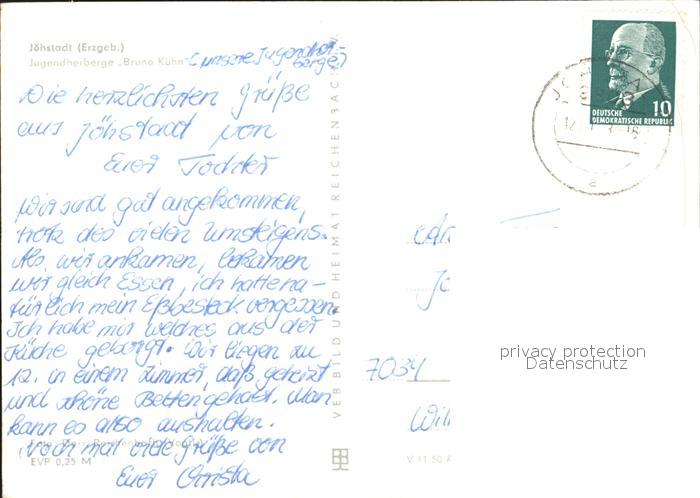 Jöhstadt (Erzgeb.)
Jugendherberge „Bruno Kühn"
(unsere Jugendher-
berge)
Die herzlichsten Grüße
aus Jöhstadt von
Eurer Tochter
Wir sind gut angekommen,
trotz des vielen Umsteigens.
Als wir ankamen, bekamen
wir gleich Essen, ich hatte na-
türlich mein Eßbesteck vergessen.
Ich habe mir welches aus der
Küche geborgt. Wir liegen zu
12. in einem Zimmer, daß geheizt
und schöne Betten gehabt. Man
kann es also aushalten.
Noch mal viele Grüße von
Eurer Christa
EVP 0,25 M
VEB BILD UND HEIMAT REICHENBACH
10
DEUTSCHE
DEMOKRATISCHE REPUBLIK
a
7034
V 11 50 A
privacy protection
Datenschutz